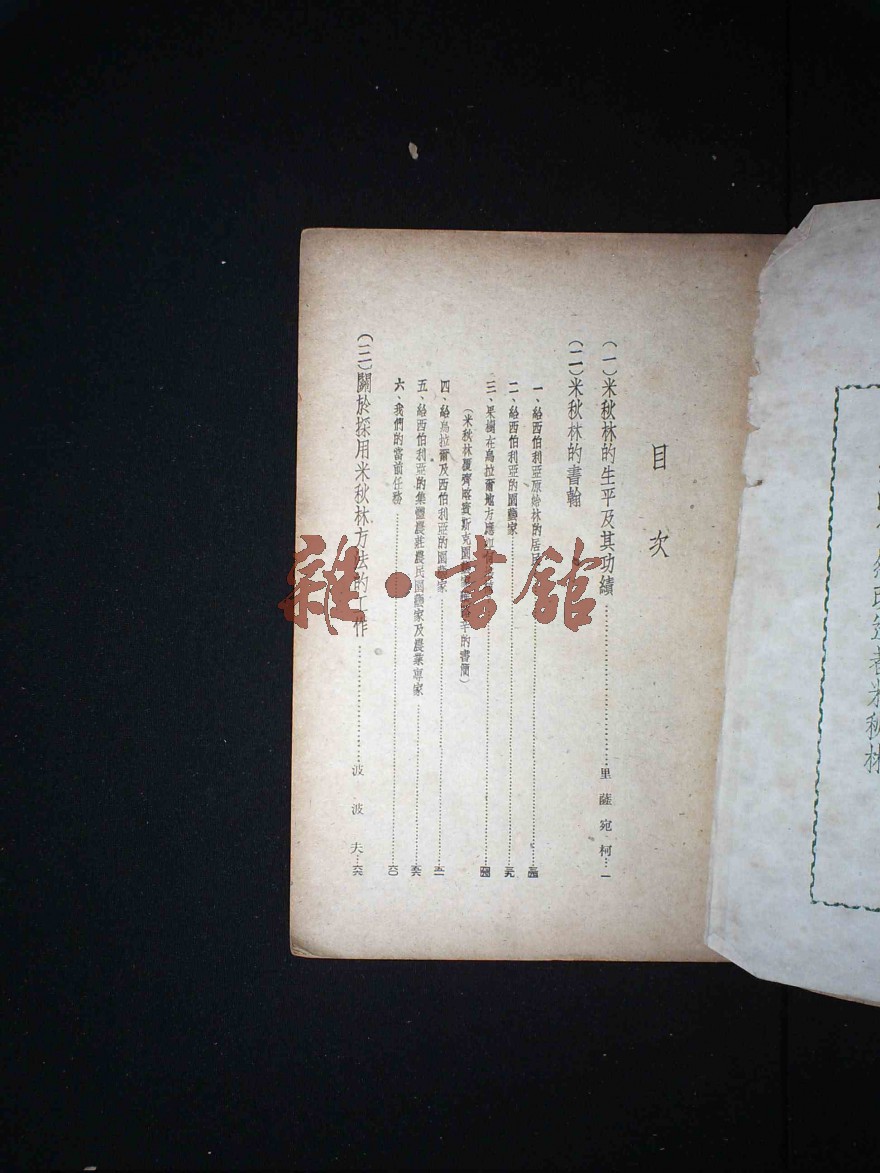 目次
(一)米秋林的生平及其功績……里薩宛柯…一
(二)米秋林的書翰
一、給西伯利亞原始林的居民
二、給西伯利亞的園藝家
三、果樹在烏拉爾地方應
(米秋林覆齊喀賓斯克園的書簡)
四、給烏拉爾及西伯利亞的園藝家
五、給西伯利亞的集體農莊農民園藝家及農業專家
六、我們的當前任務
(三)關於採用米秋林方法的工作……波波夫
雜·書館
者米秋林